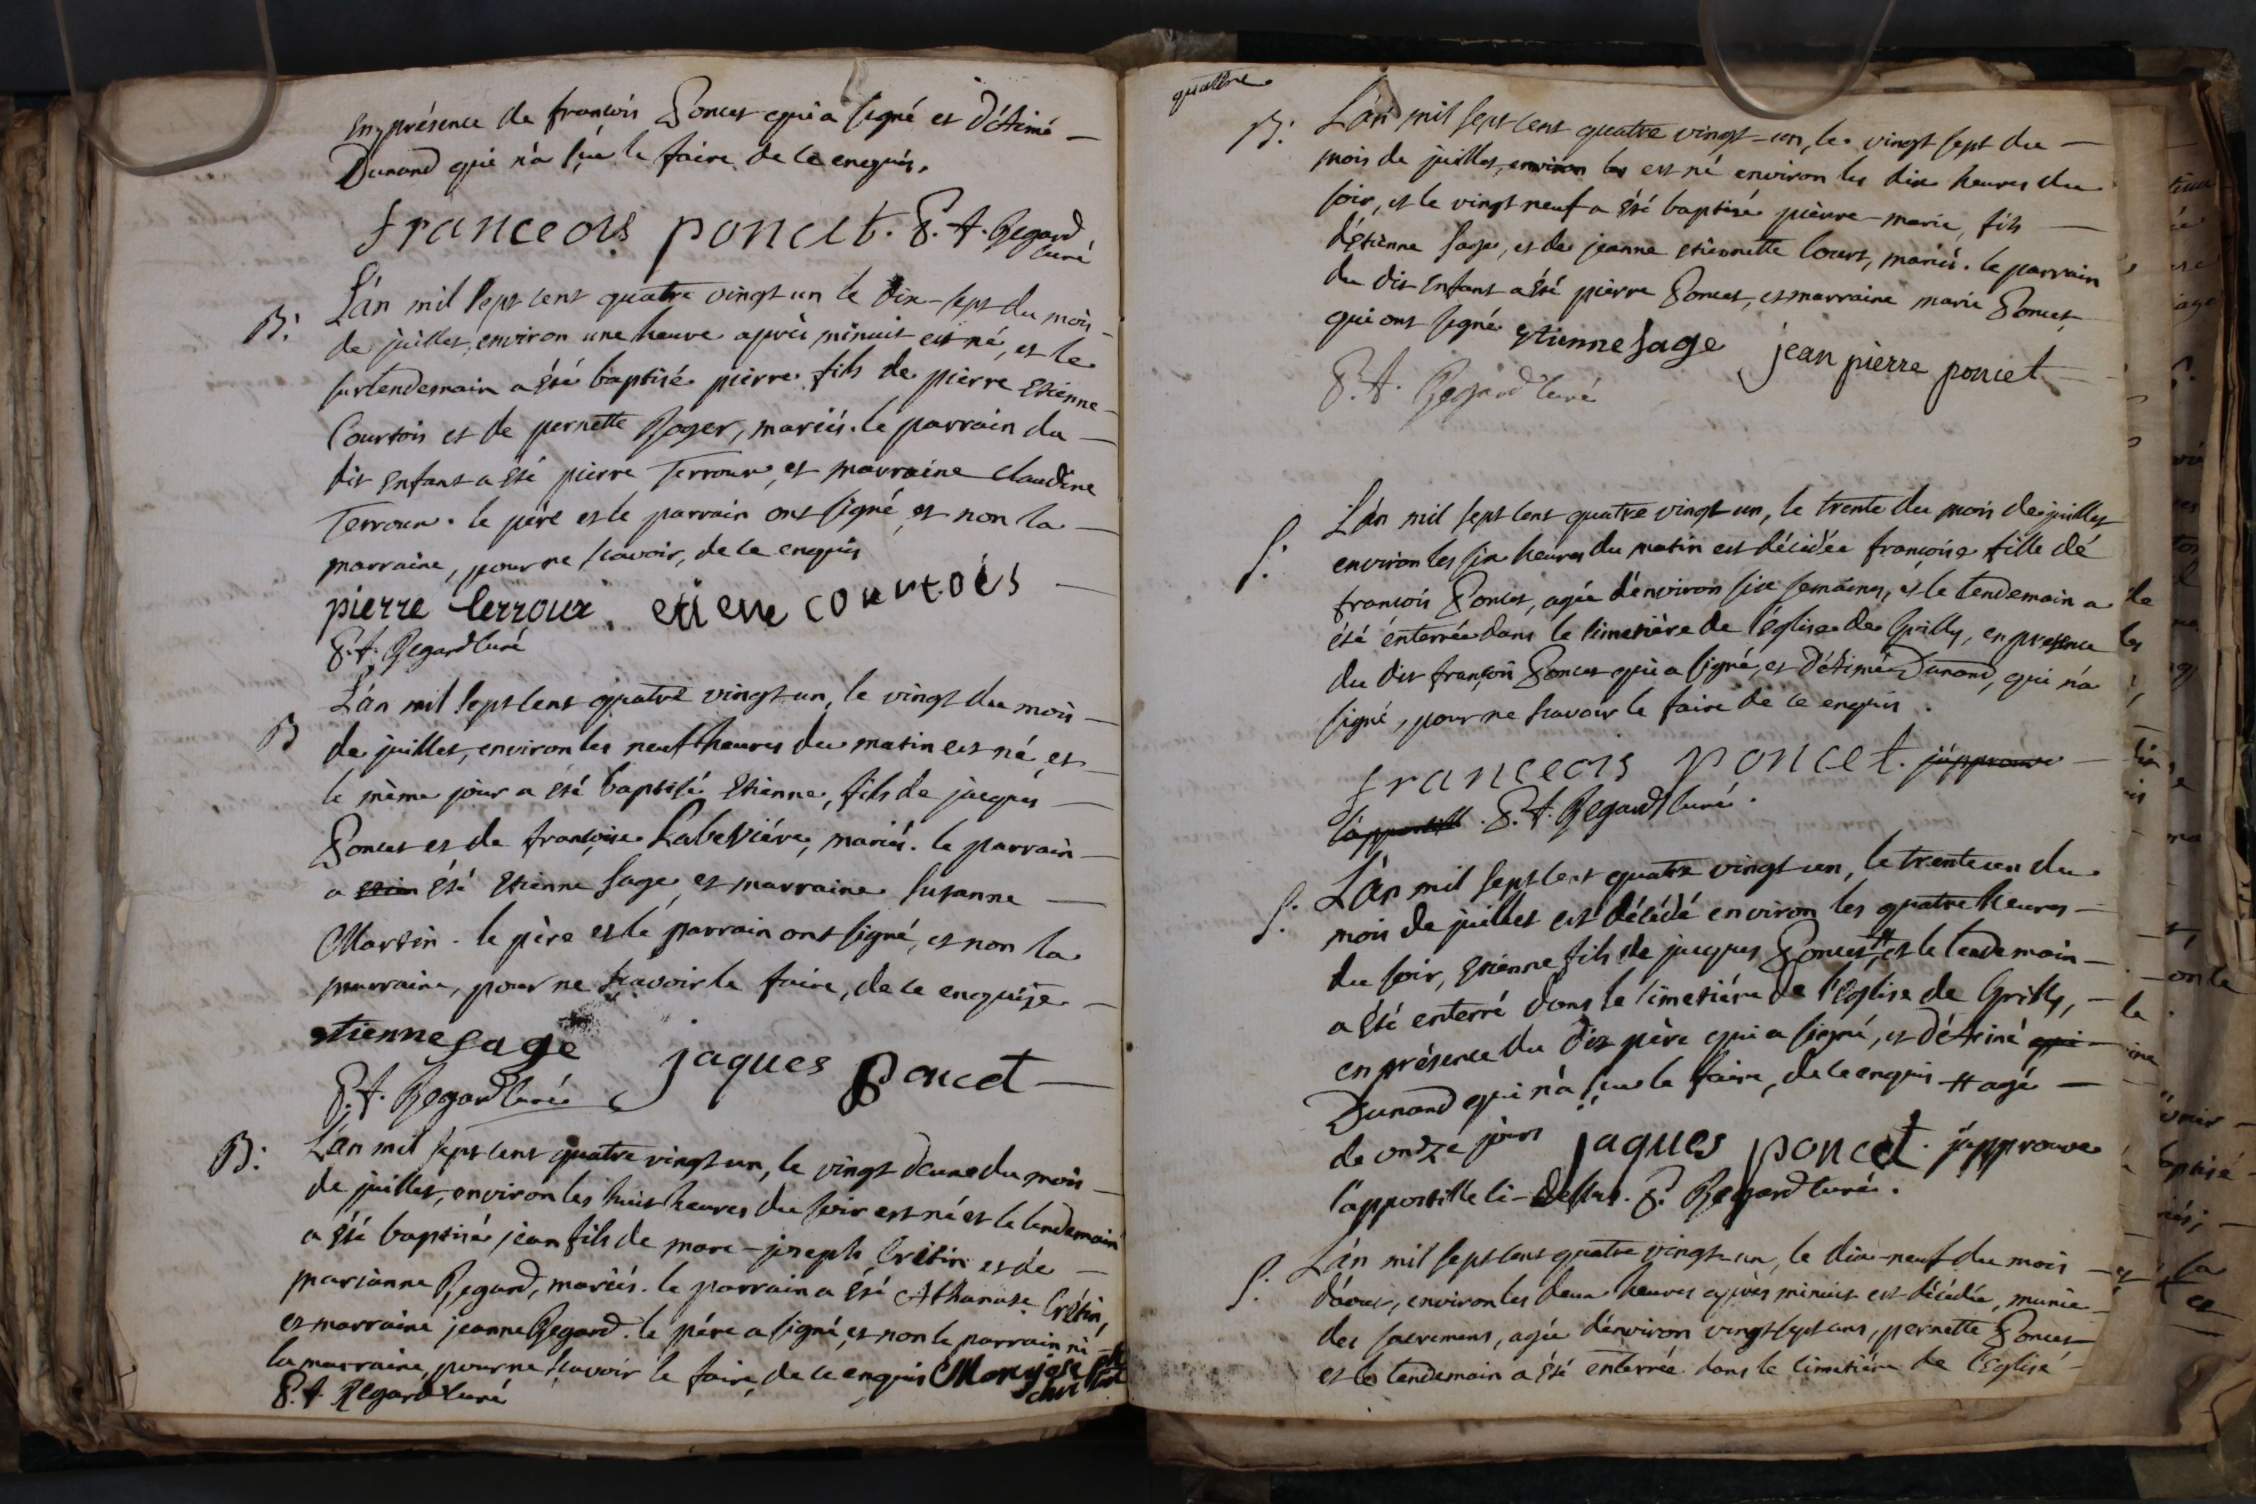 en présence de françois Poncet qui a signé et d'étiné
Dunand qui n'a sçu le faire de ce enquis.
franceois poncet. P. A. Regard
curé
B: L'an mil sept cent quatre vingt un le dix-sept du mois
de juillet, environ une heure après minuit est né, et le
surlendemain a été baptisé pierre fils de pierre Etienne
Courtois et de pernette Roger, mariés. le parrain du
dit enfant a été pierre Terroux, et marraine claudine
Terroux. le père et le parrain ont signé et non la
marraine, pour ne sçavoir, de ce enquis
pierre terroux. etiene courtois
P. A. Regard curé
B L'an mil sept cent quatre vingt un, le vingt du mois
de juillet, environ les neuf heures du matin est né, et
le même jour a été baptisé Etienne, fils de jacques
Poncet et de françoise Labeviére, mariés. le parrain
a été Etienne Sage, et marraine Susanne
Martin. le père et le parrain ont signé, et non la
marraine, pour ne sçavoir le faire, de ce enquise
etienne sage jaques poncet
P. A. Regard curé
B: L'an mil sept cent quatre vingt un, le vingt deux du mois
de juillet, environ les huit heures du soir est né et le lendemain
a été baptisé jean fils de marc-joseph Crétin et de
marianne Regard, mariés. le parrain a été Athanase Crétin,
et marraine jeanne Regard. le père a signé, et non le parrain ni
la marraine, pour ne sçavoir le faire, de ce enquis
P. A. Regard curé
quatre
B: L'an mil sept cent quatre vingt-un, le vingt sept du
mois de juillet, environ les est né environ les dix heures du
soir, et le vingt neuf a été baptisé pierre-marie, fils
d'étienne Sage, et de jeanne etiennette Court, mariés. le parrain
du dit enfant a été pierre Poncet, et marraine marie Poncet,
qui ont signé etienne sage jean pierre poncet
P. A. Regard curé
S. L'an mil sept cent quatre vingt un, le trente du mois de juillet
environ les six heures du matin est décédée françoise fille de
françois Poncet, agée d'environ six semaines, et le lendemain a
été enterrée dans le cimetière de l'église de Grilly, en presence
du dit françois Poncet qui a signé, et d'étiné Dunand, qui n'a
signé, pour ne sçavoir le faire de ce enquis.
franceois poncet. j'approuve
l'appostille. P. A. Regard curé.
S. L'an mil sept cent quatre vingt un, le trente un du
mois de juillet est décédé environ les quatre heures
du soir, etienne fils de jacques Poncet, # et le lendemain
a été enterré dans le cimetiére de l'Eglise de Grilly,
en présence du dit père qui a signé, et d'étiné qui
Dunand qui n'a sçu le faire, de ce enquis # agé
de ondze jours jaques poncet. j'approuve
l'appostille ci-dessus. P. Regard curé.
S. L'an mil sept cent quatre vingt un, le dix-neuf du mois
d'aout, environ les deux heures après minuit est décédée, munie
des sacremens, agée d'environ vingt sept ans, pernette Poncet
et le lendemain a été enterrée dans le cimetiére de l'Eglise